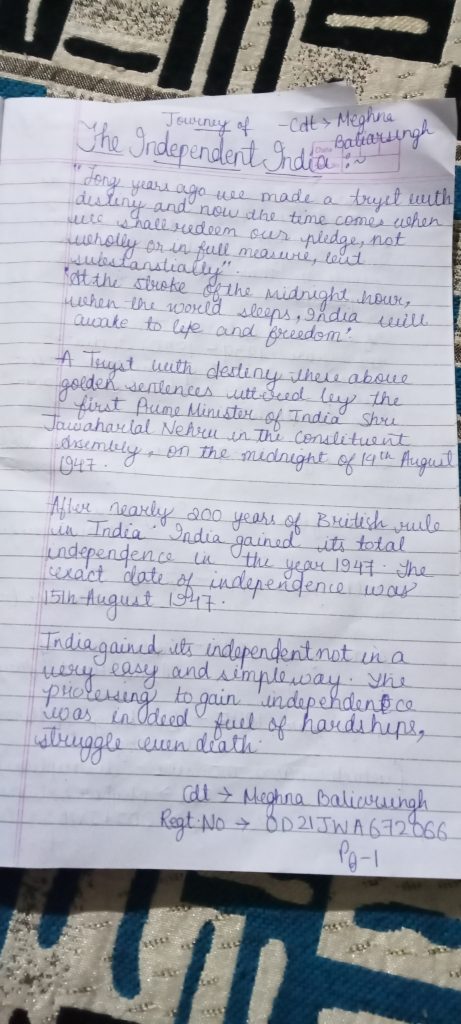 Journey of - Cdt → Meghna
Baliarsingh
The Independent India :~
"Long years ago we made a tryst with
destiny and now the time comes when
we shall redeem our pledge, not
wholly or in full measure, but
substanstially".
"At the stroke of the midnight hour,
when the world sleeps, India will
awake to life and freedom".
A Tryst with destiny these above
golden sentences uttered by the
first Prime Minister of India Shri
Jawaharlal Nehru in the Constituent
Assembly, on the midnight of 14th August
1947.
After nearly 200 years of British rule
in India India gained its total
independence in the year 1947. The
exact date of independence was
15th August 1947.
India gained its independent not in a
very easy and simple way. The
processing to gain independence
was indeed fuel of hardships,
struggle even death.
Cdt → Meghna Baliarsingh
Regt. No → OD21JWA672066
Pg-1